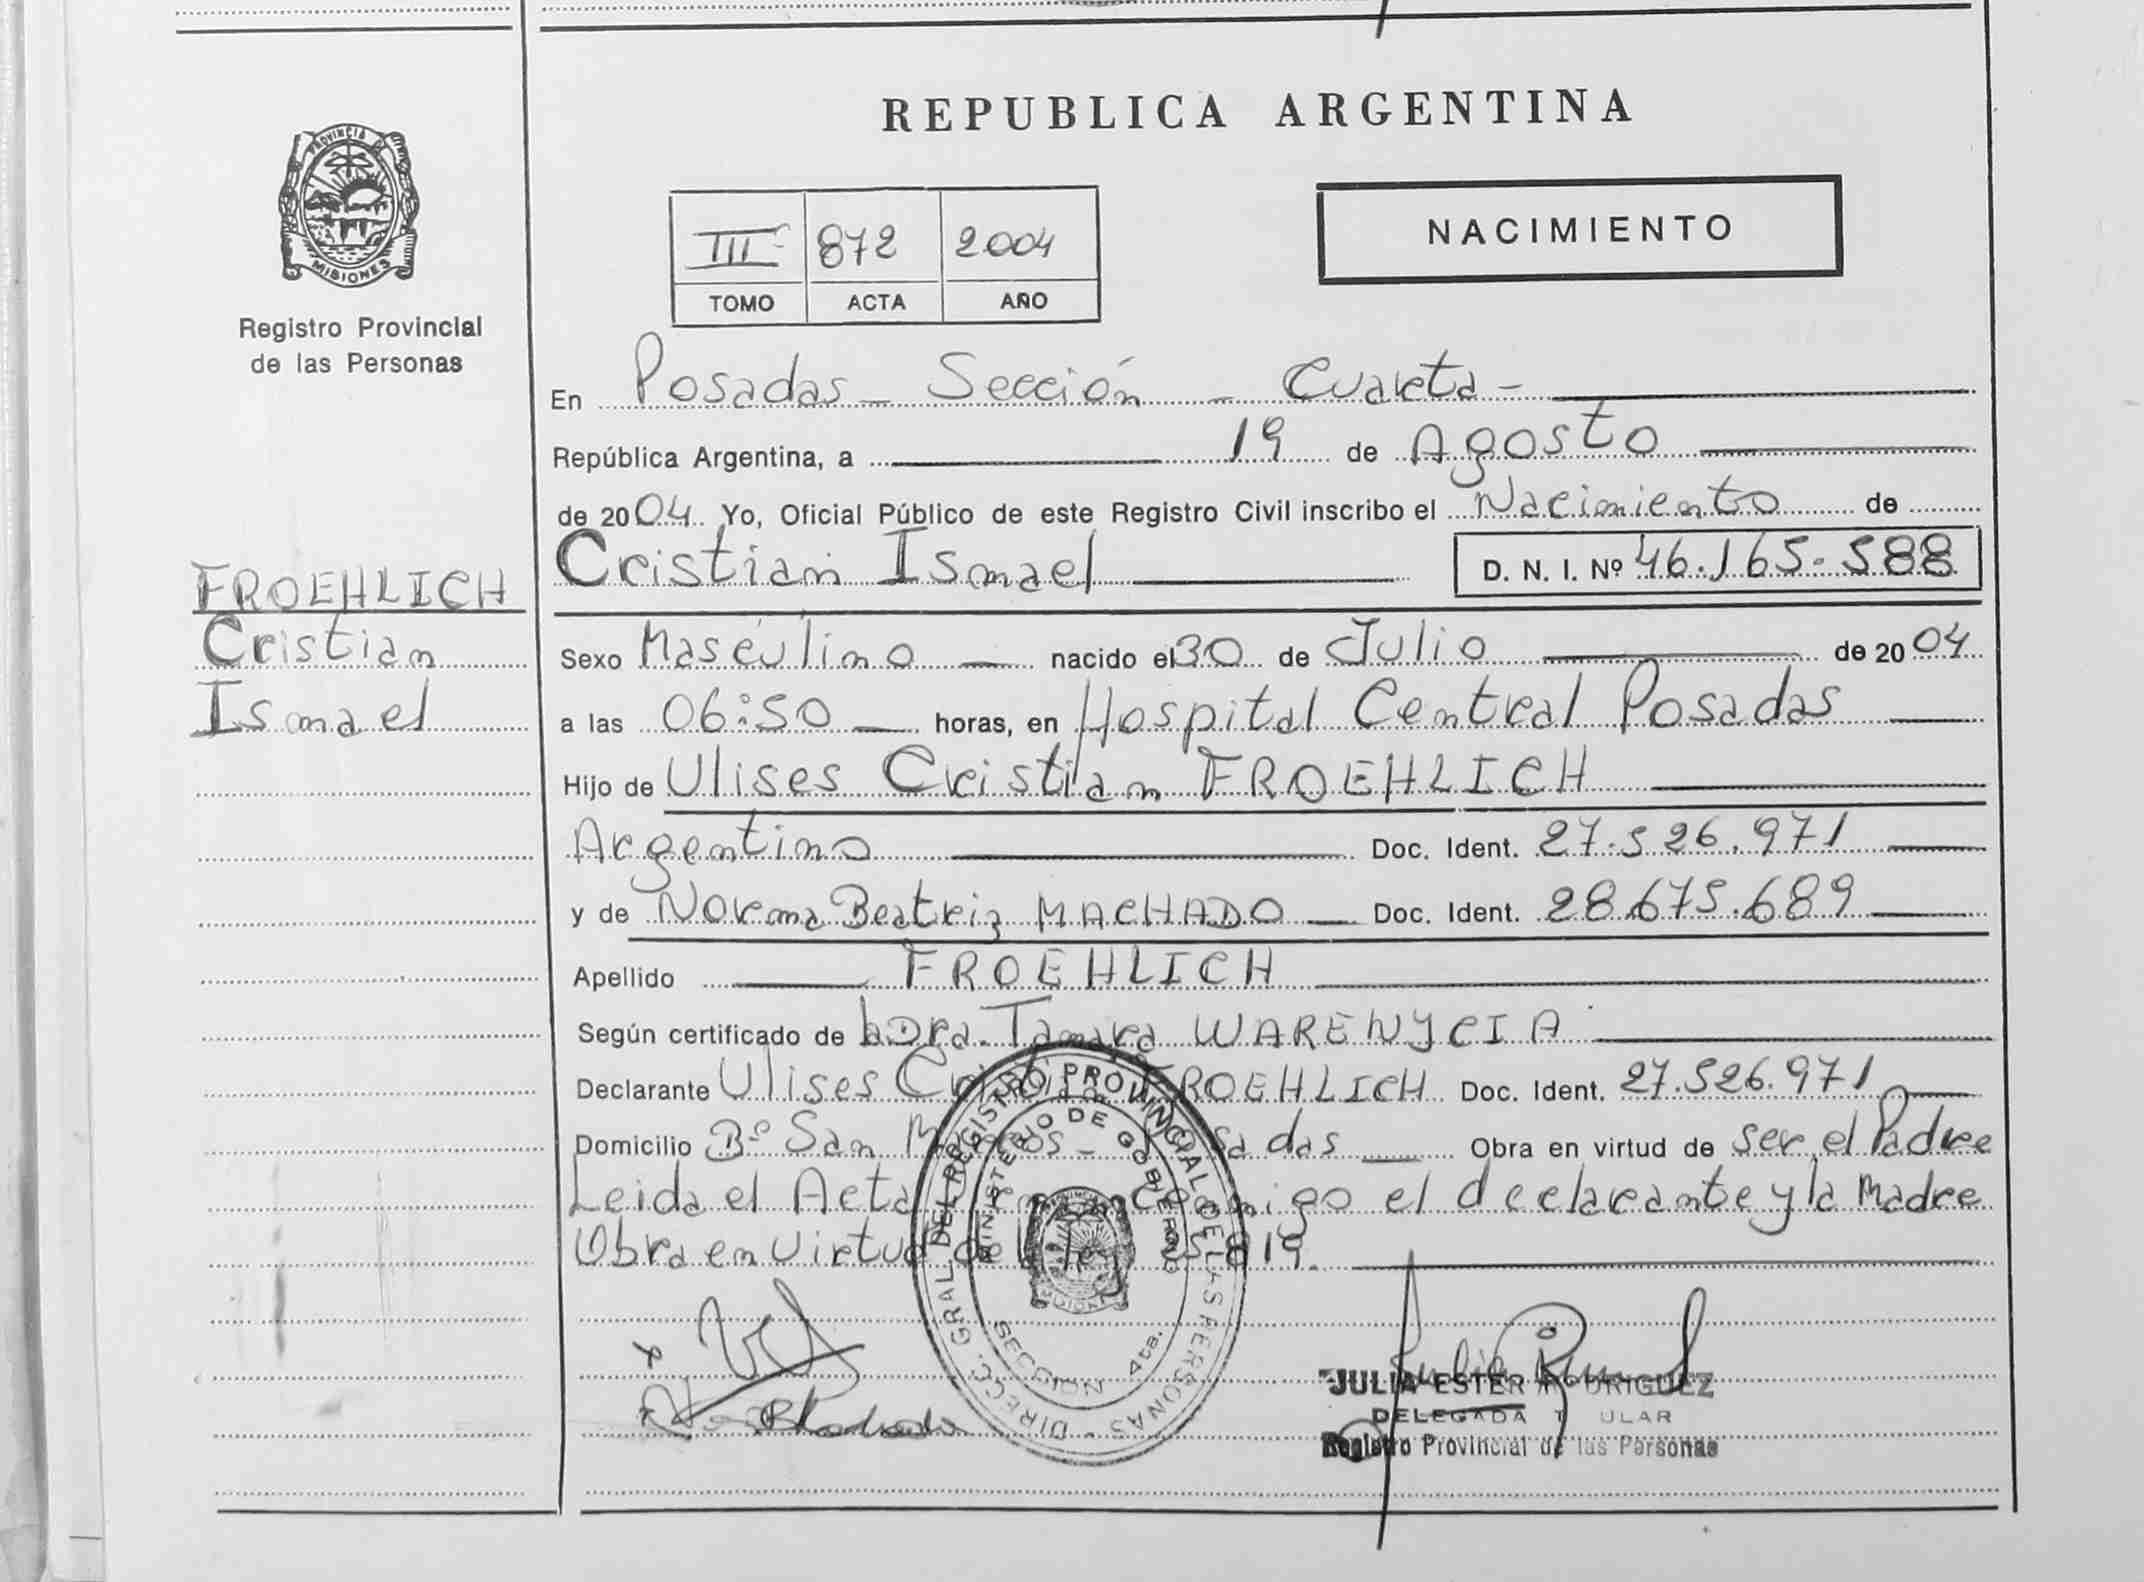 PROVINCIA DE
MISIONES
Registro Provincial
de las Personas
FROEHLICH
Cristian
Ismael
REPUBLICA ARGENTINA
III 872 2004
TOMO ACTA AÑO
NACIMIENTO
En Posadas - Sección - Cuarta -
República Argentina, a 19 de Agosto
de 2004 Yo, Oficial Público de este Registro Civil inscribo el Nacimiento de
Cristian Ismael D. N. I. Nº 46.165.588
Sexo Masculino nacido el 30 de Julio de 2004
a las 06:50 horas, en Hospital Central Posadas
Hijo de Ulises Cristian FROEHLICH
Argentino Doc. Ident. 27.526.971
y de Norma Beatriz MACHADO Doc. Ident. 28.675.689
Apellido FROEHLICH
Según certificado de la Dra. Tamara WARENYCIA
Declarante Ulises Cristian FROEHLICH Doc. Ident. 27.526.971
Domicilio Bº San Marcos - Posadas Obra en virtud de ser el Padre
Leida el Acta conmigo el declarante y la Madre
Obra en virtud de Ley 25819.
DIRECC. GRAL. DEL REGISTRO PROVINCIAL DE LAS PERSONAS
MINISTERIO DE GOBIERNO
SECCION 4ta.
JULIA ESTER RODRIGUEZ
DELEGADA TITULAR
Registro Provincial de las Personas